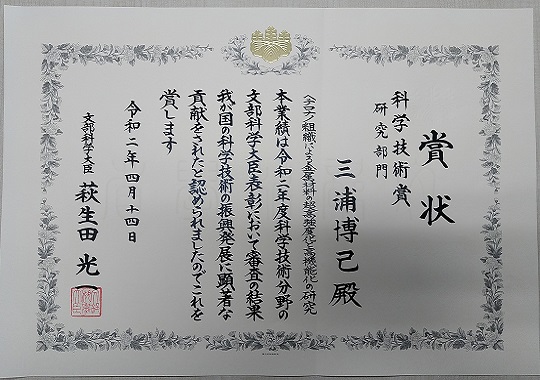 賞状
科学技術賞
研究部門
三浦博己殿
ヘテロナノ組織による金属材料の超高強度化・高機能化の研究
本業績は令和二年度科学技術分野の
文部科学大臣表彰において審査の結果
我が国の科学技術の振興発展に顕著な
貢献をされたと認められましたのでこれを
賞します
令和二年四月十四日
文部科学大臣 萩生田光一